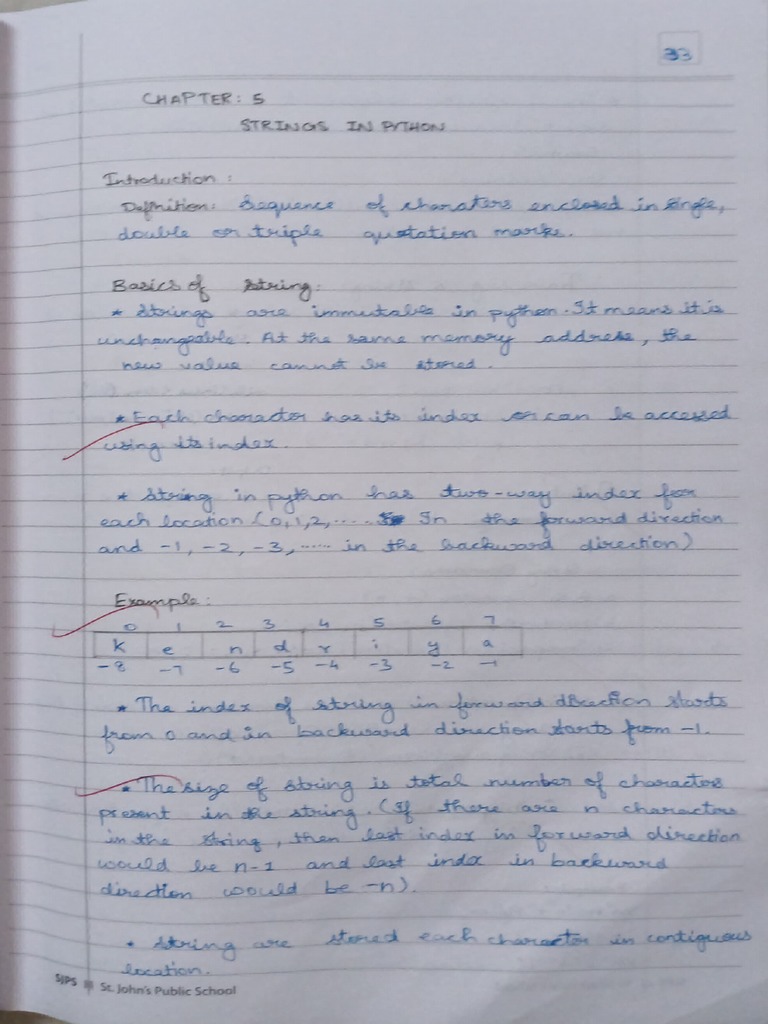 33
CHAPTER: 5
STRINGS IN PYTHON
Introduction:
Definition: Sequence of charaters enclosed in single,
double or triple quotation marks.
Basics of string:
* Strings are immutable in python. It means it is
unchangeable. At the same memory address, the
new value cannot be stored.
* Each charactor has its index or can be accessed
using its index.
* String in python has two-way index for
each location (0, 1, 2, ..... In the forward direction
and -1, -2, -3, ..... in the backward direction)
Example:
0 1 2 3 4 5 6 7
k e n d r i y a
-8 -7 -6 -5 -4 -3 -2 -1
* The index of string in forward direction starts
from 0 and in backward direction starts from -1.
* The size of string is total number of charactors
present in the string. (If there are n charactors
in the string, then last index in forward direction
would be n-1 and last index in backward
direction would be -n).
* String are stored each charactor in contiguous
location.
SJPS St. John's Public School